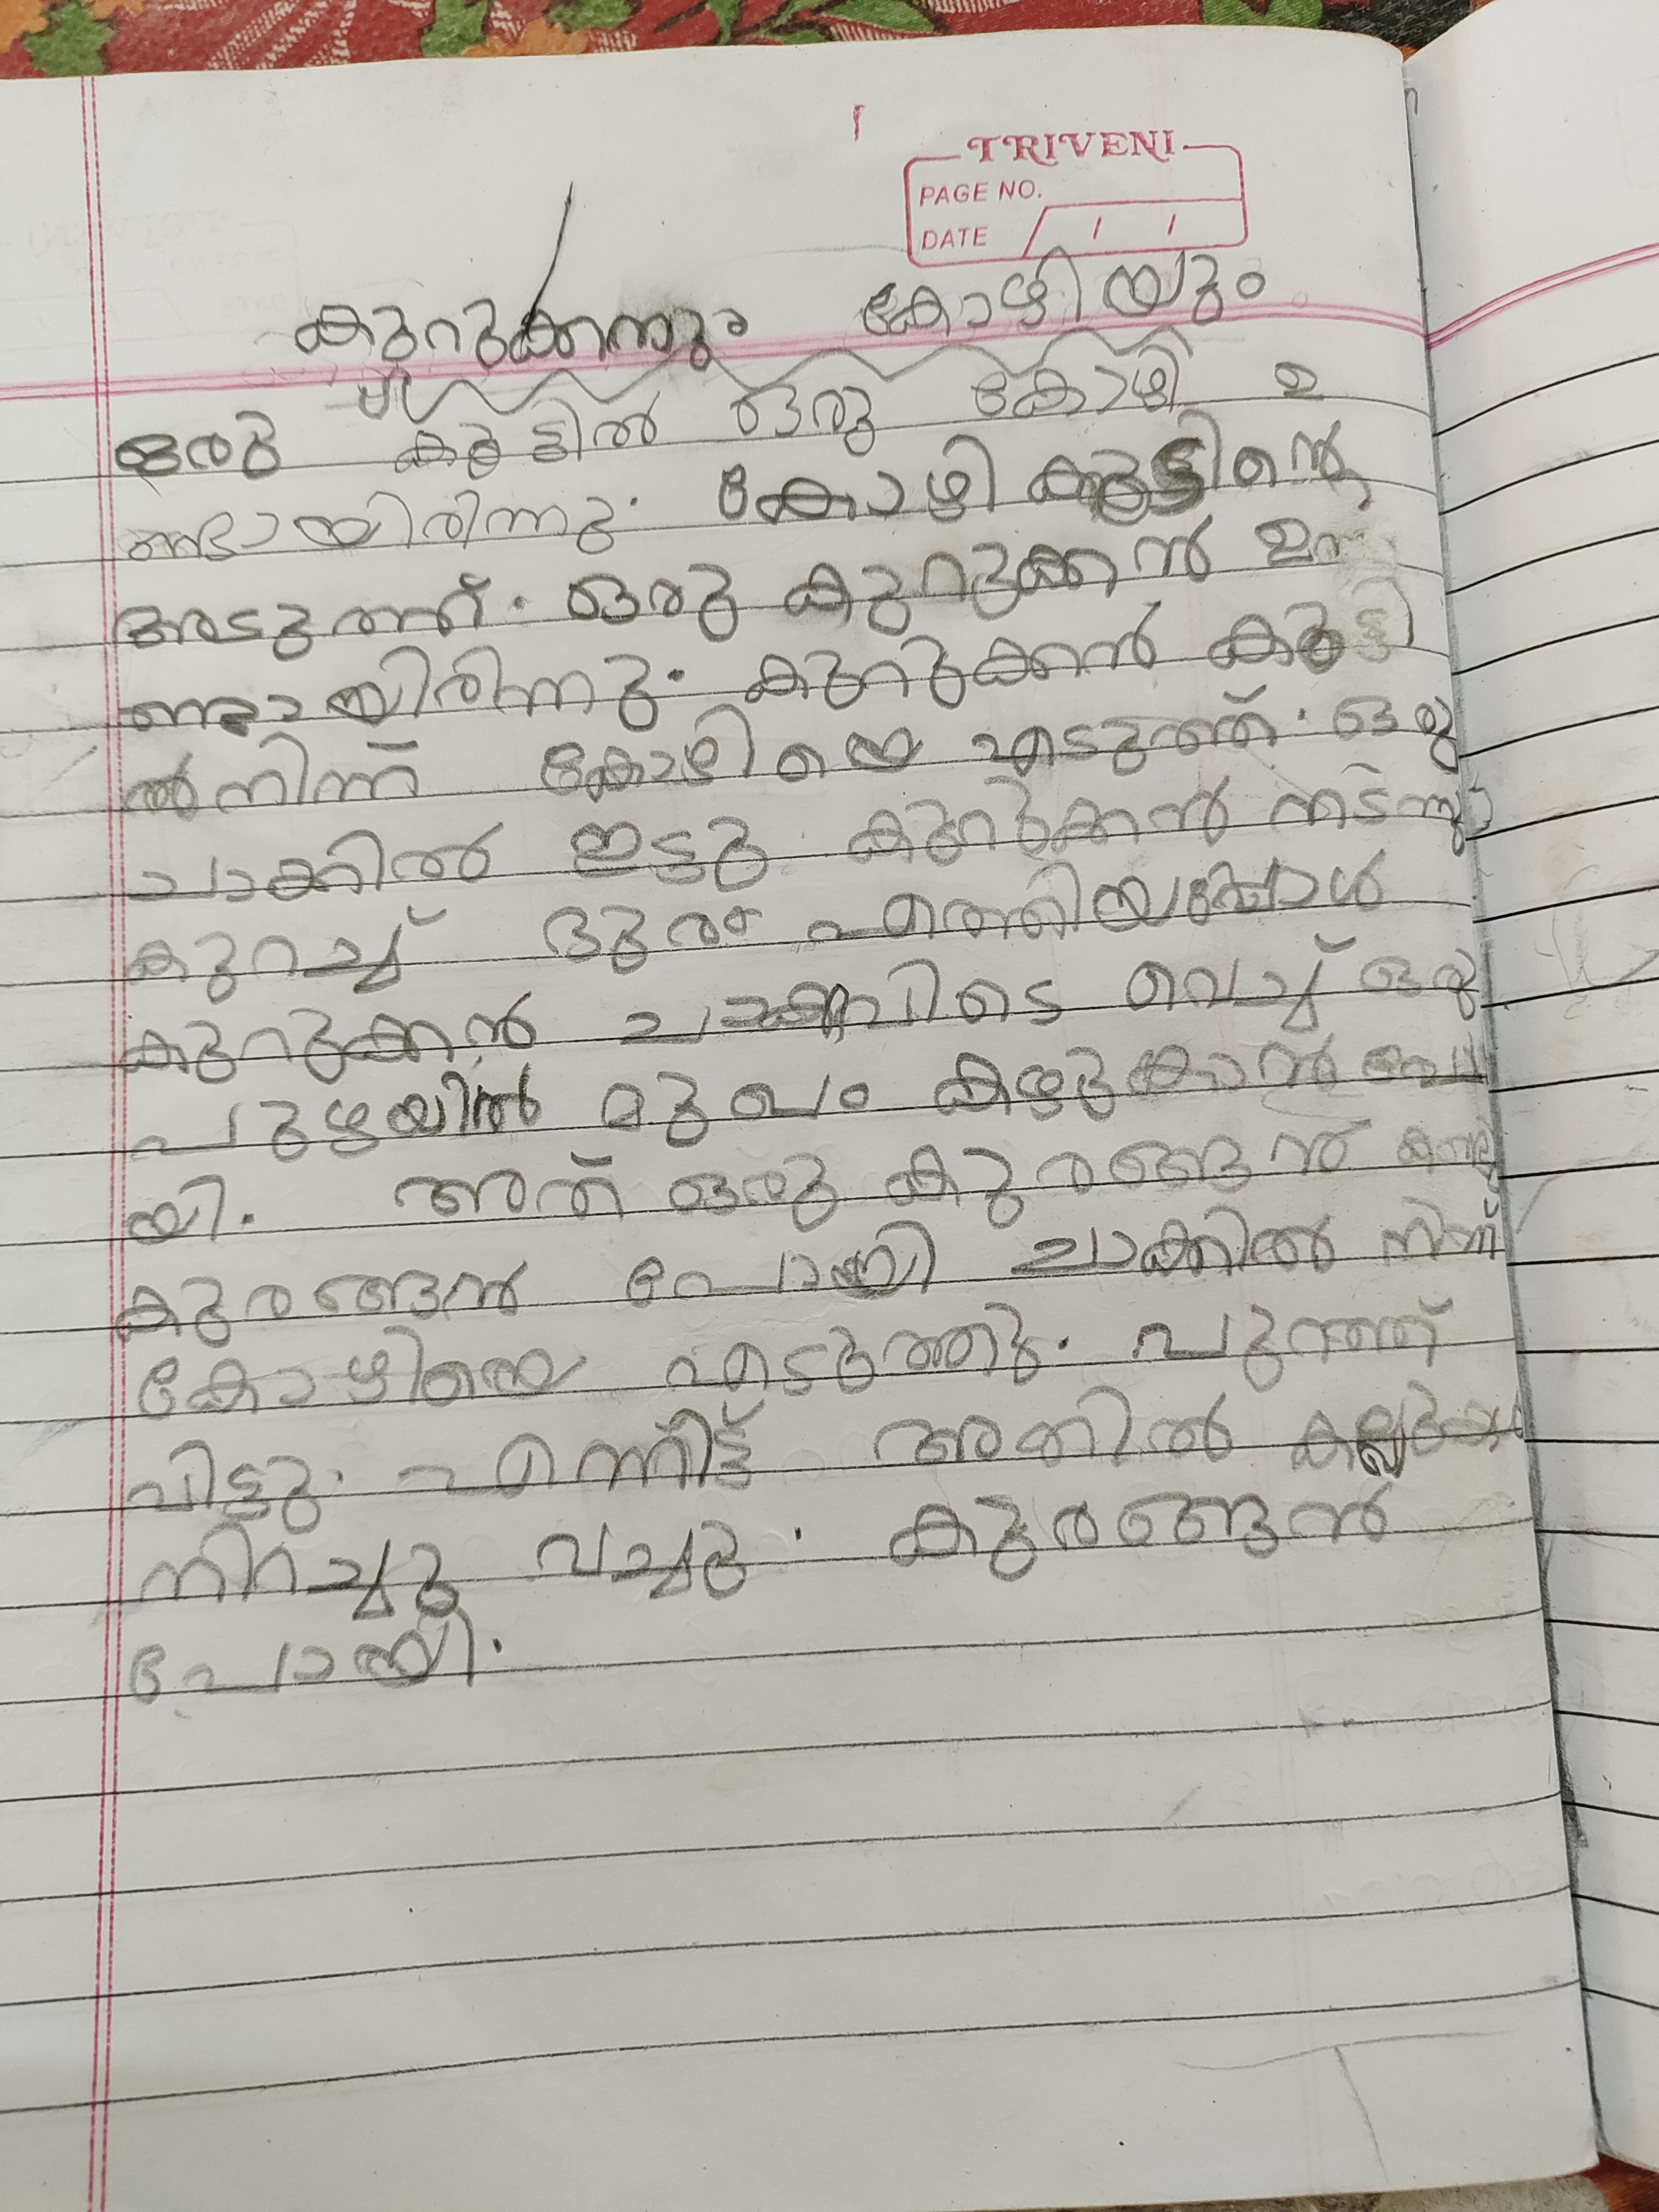 TRIVENI
PAGE NO.
DATE / /
കുറുക്കനും കോഴിയും
ഒരു കൂട്ടിൽ ഒരു കോഴി ഉ
ണ്ടായിരിന്നു. കോഴി കൂട്ടിന്റെ
അടുത്ത്. ഒരു കുറുക്കൻ ഉ
ണ്ടായിരിന്നു. കുറുക്കൻ കൂട്ടി
ൽനിന്ന് കോഴിയെ എടുത്ത്. ഒരു
ചാക്കിൽ ഇട്ടു. കുറുക്കൻ നടന്നു
കുറച്ച് ദുരം എത്തിയപ്പോൾ
കുറുക്കൻ ചാക്ക് അവിടെ വെച്ച് ഒരു
പുഴയിൽ മുഖം കഴുകാൻ പോ
യി. അത് ഒരു കുരങ്ങൻ കണ്ടു
കുരങ്ങൻ പോയി ചാക്കിൽ നിന്ന്
കോഴിയെ എടുത്തു. പുറത്ത്
വിട്ടു. എന്നിട്ട് അതിൽ
നിറച്ചു വച്ചു. കുരങ്ങൻ
പോയി.